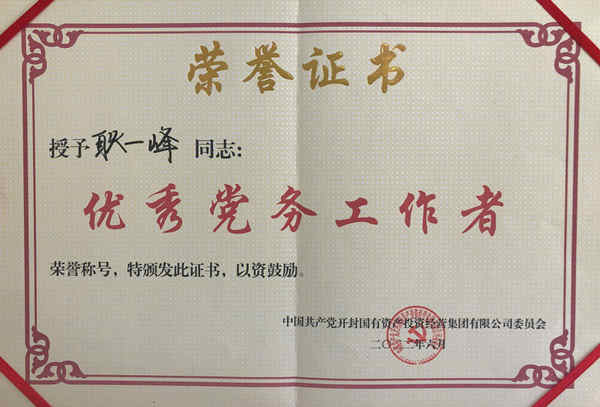 荣誉证书
授予耿一峰 同志：
优秀党务工作者
荣誉称号，特颁发此证书，以资鼓励。
中国共产党开封国有资产投资经营集团有限公司委员会
二〇二二年六月